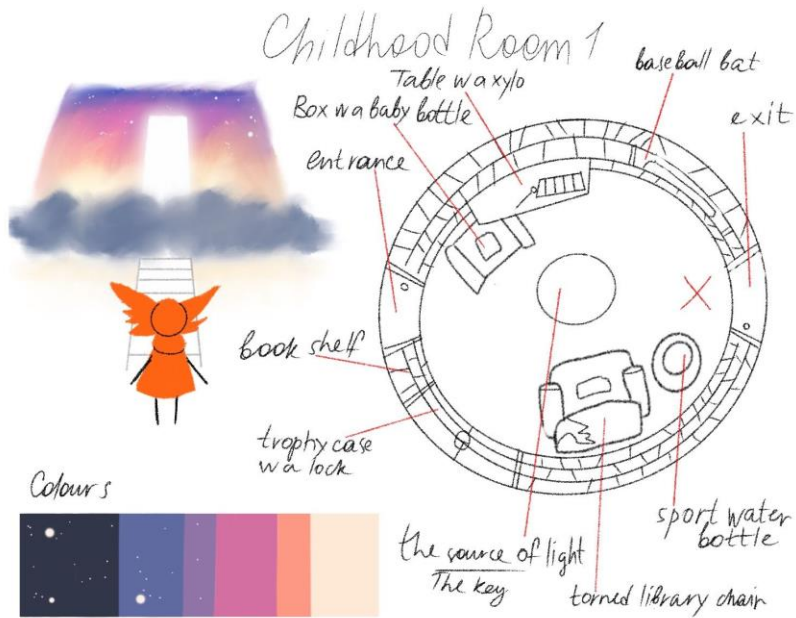 Childhood Room 1
Table w a xylo
baseball bat
Box w a baby bottle
exit
entrance
book shelf
trophy case
w a lock
Colours
the source of light
The key
torned library chair
sport water
bottle